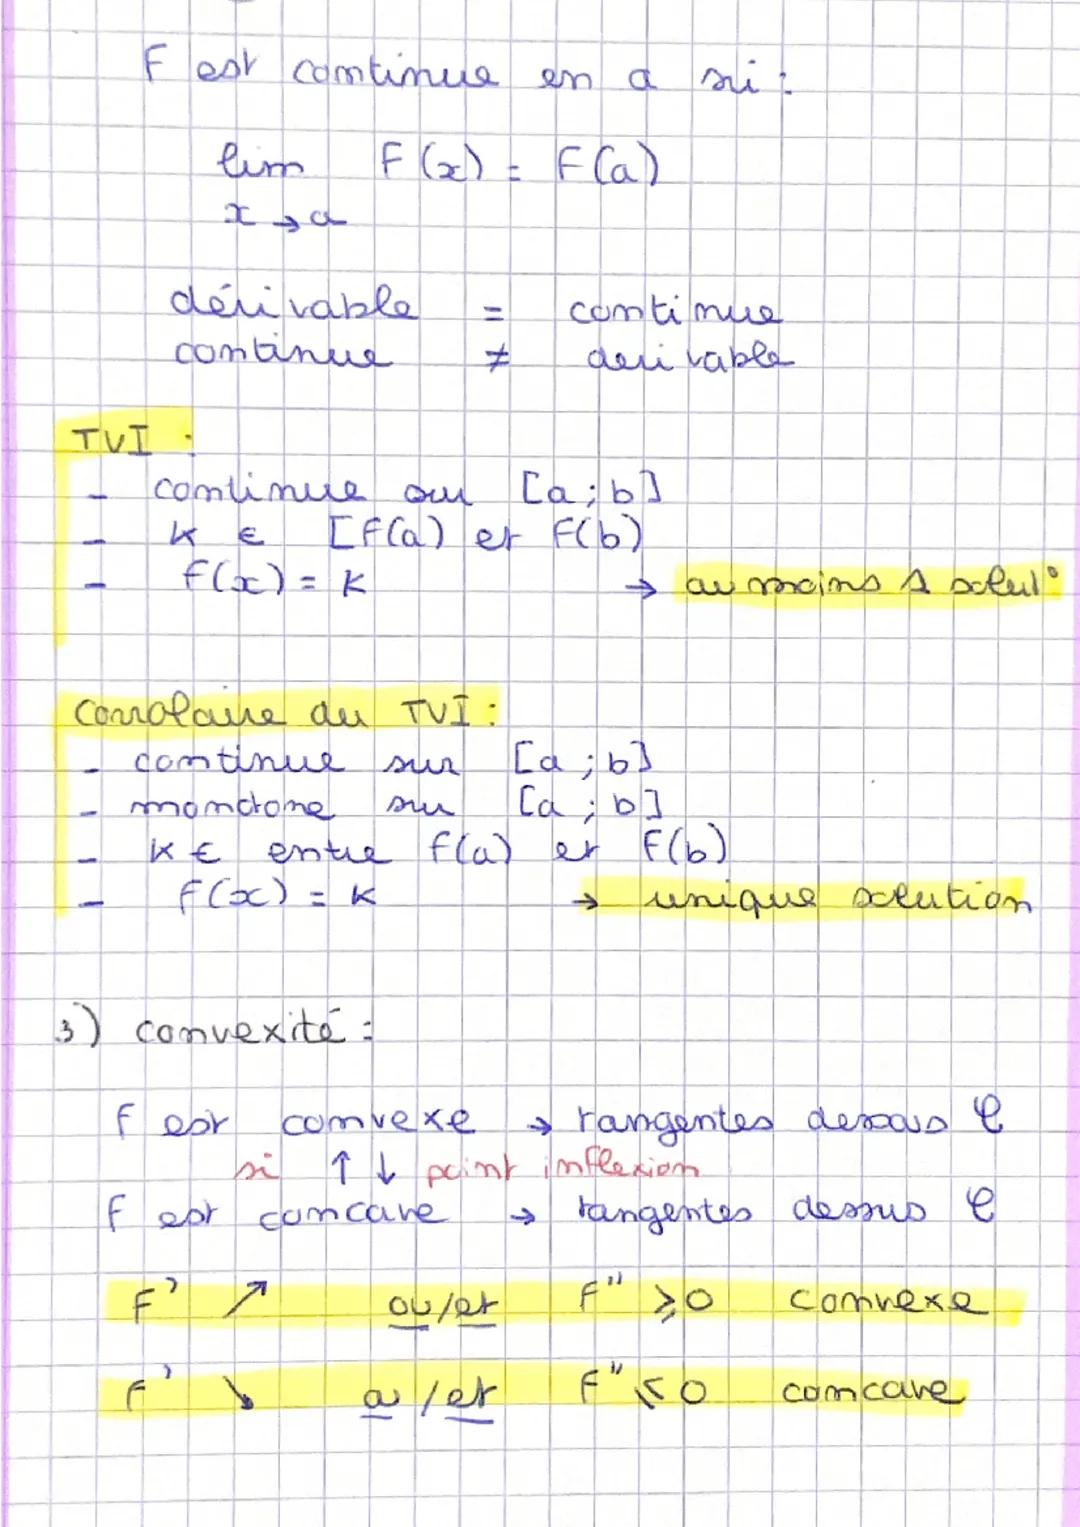 F est continue en a si :
lim F(x) = F(a)
x → a
dérivable = continue
continue ≠ derivable
TVI :
- continue sur [a ; b]
- K ∈ [f(a) et F(b)
- f(x) = K → au moins 1 solut°
Corrolaire du TVI :
- continue sur [a ; b]
- monotone sur [a ; b]
- K ∈ entre f(a) et F(b)
- f(x) = K → unique solution
3) convexité :
f est convexe → tangentes dessous C
si ↑ ↓ point inflexion
f est concave → tangentes dessus C
F' ↗ ou/et F'' ⩾ 0 convexe
F' ↘ ou/et F'' ⩽ 0 concave